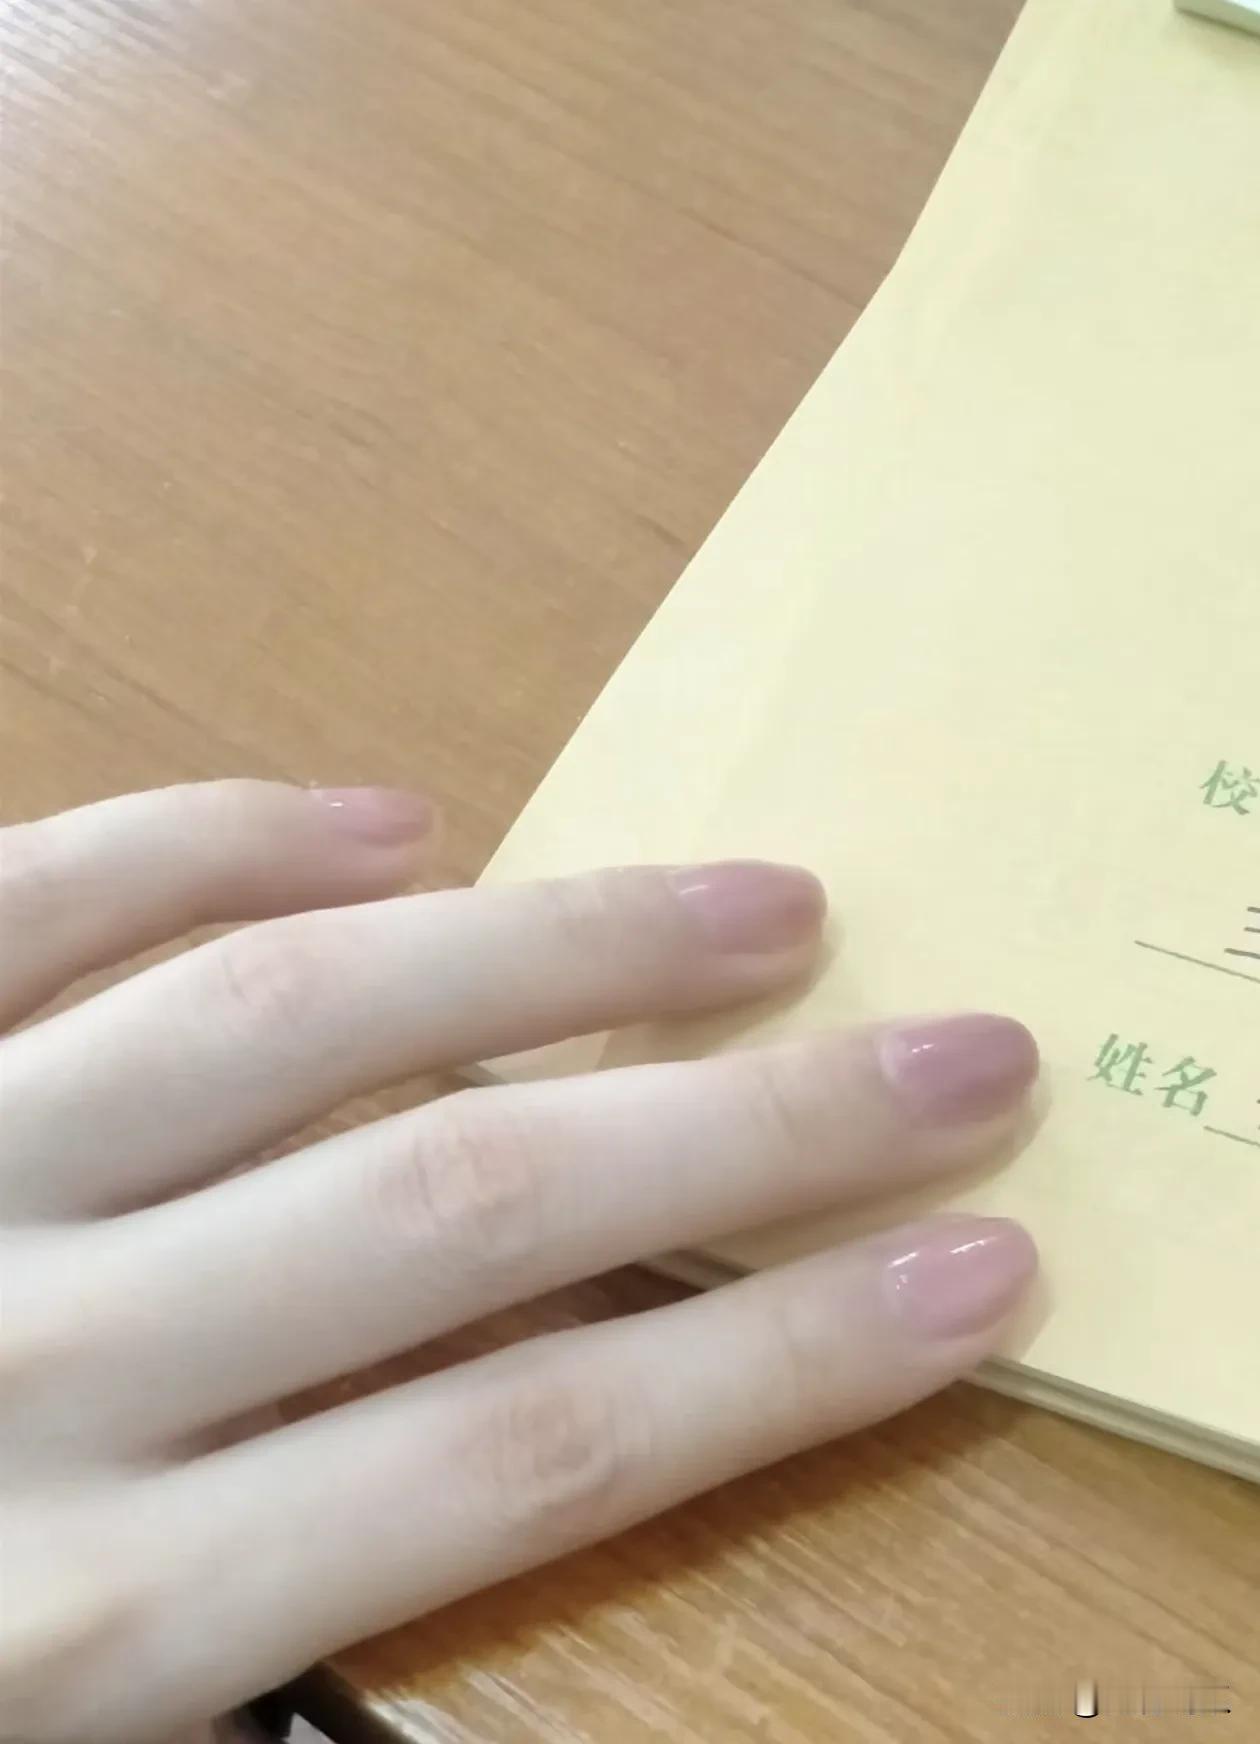 校
三
姓名